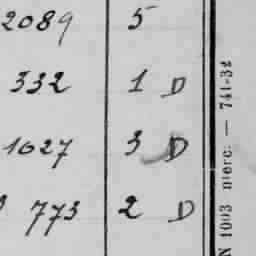 2089 5
332 1 D
1027 3 D
773 2 D
N 1003 nierc: — 741-32